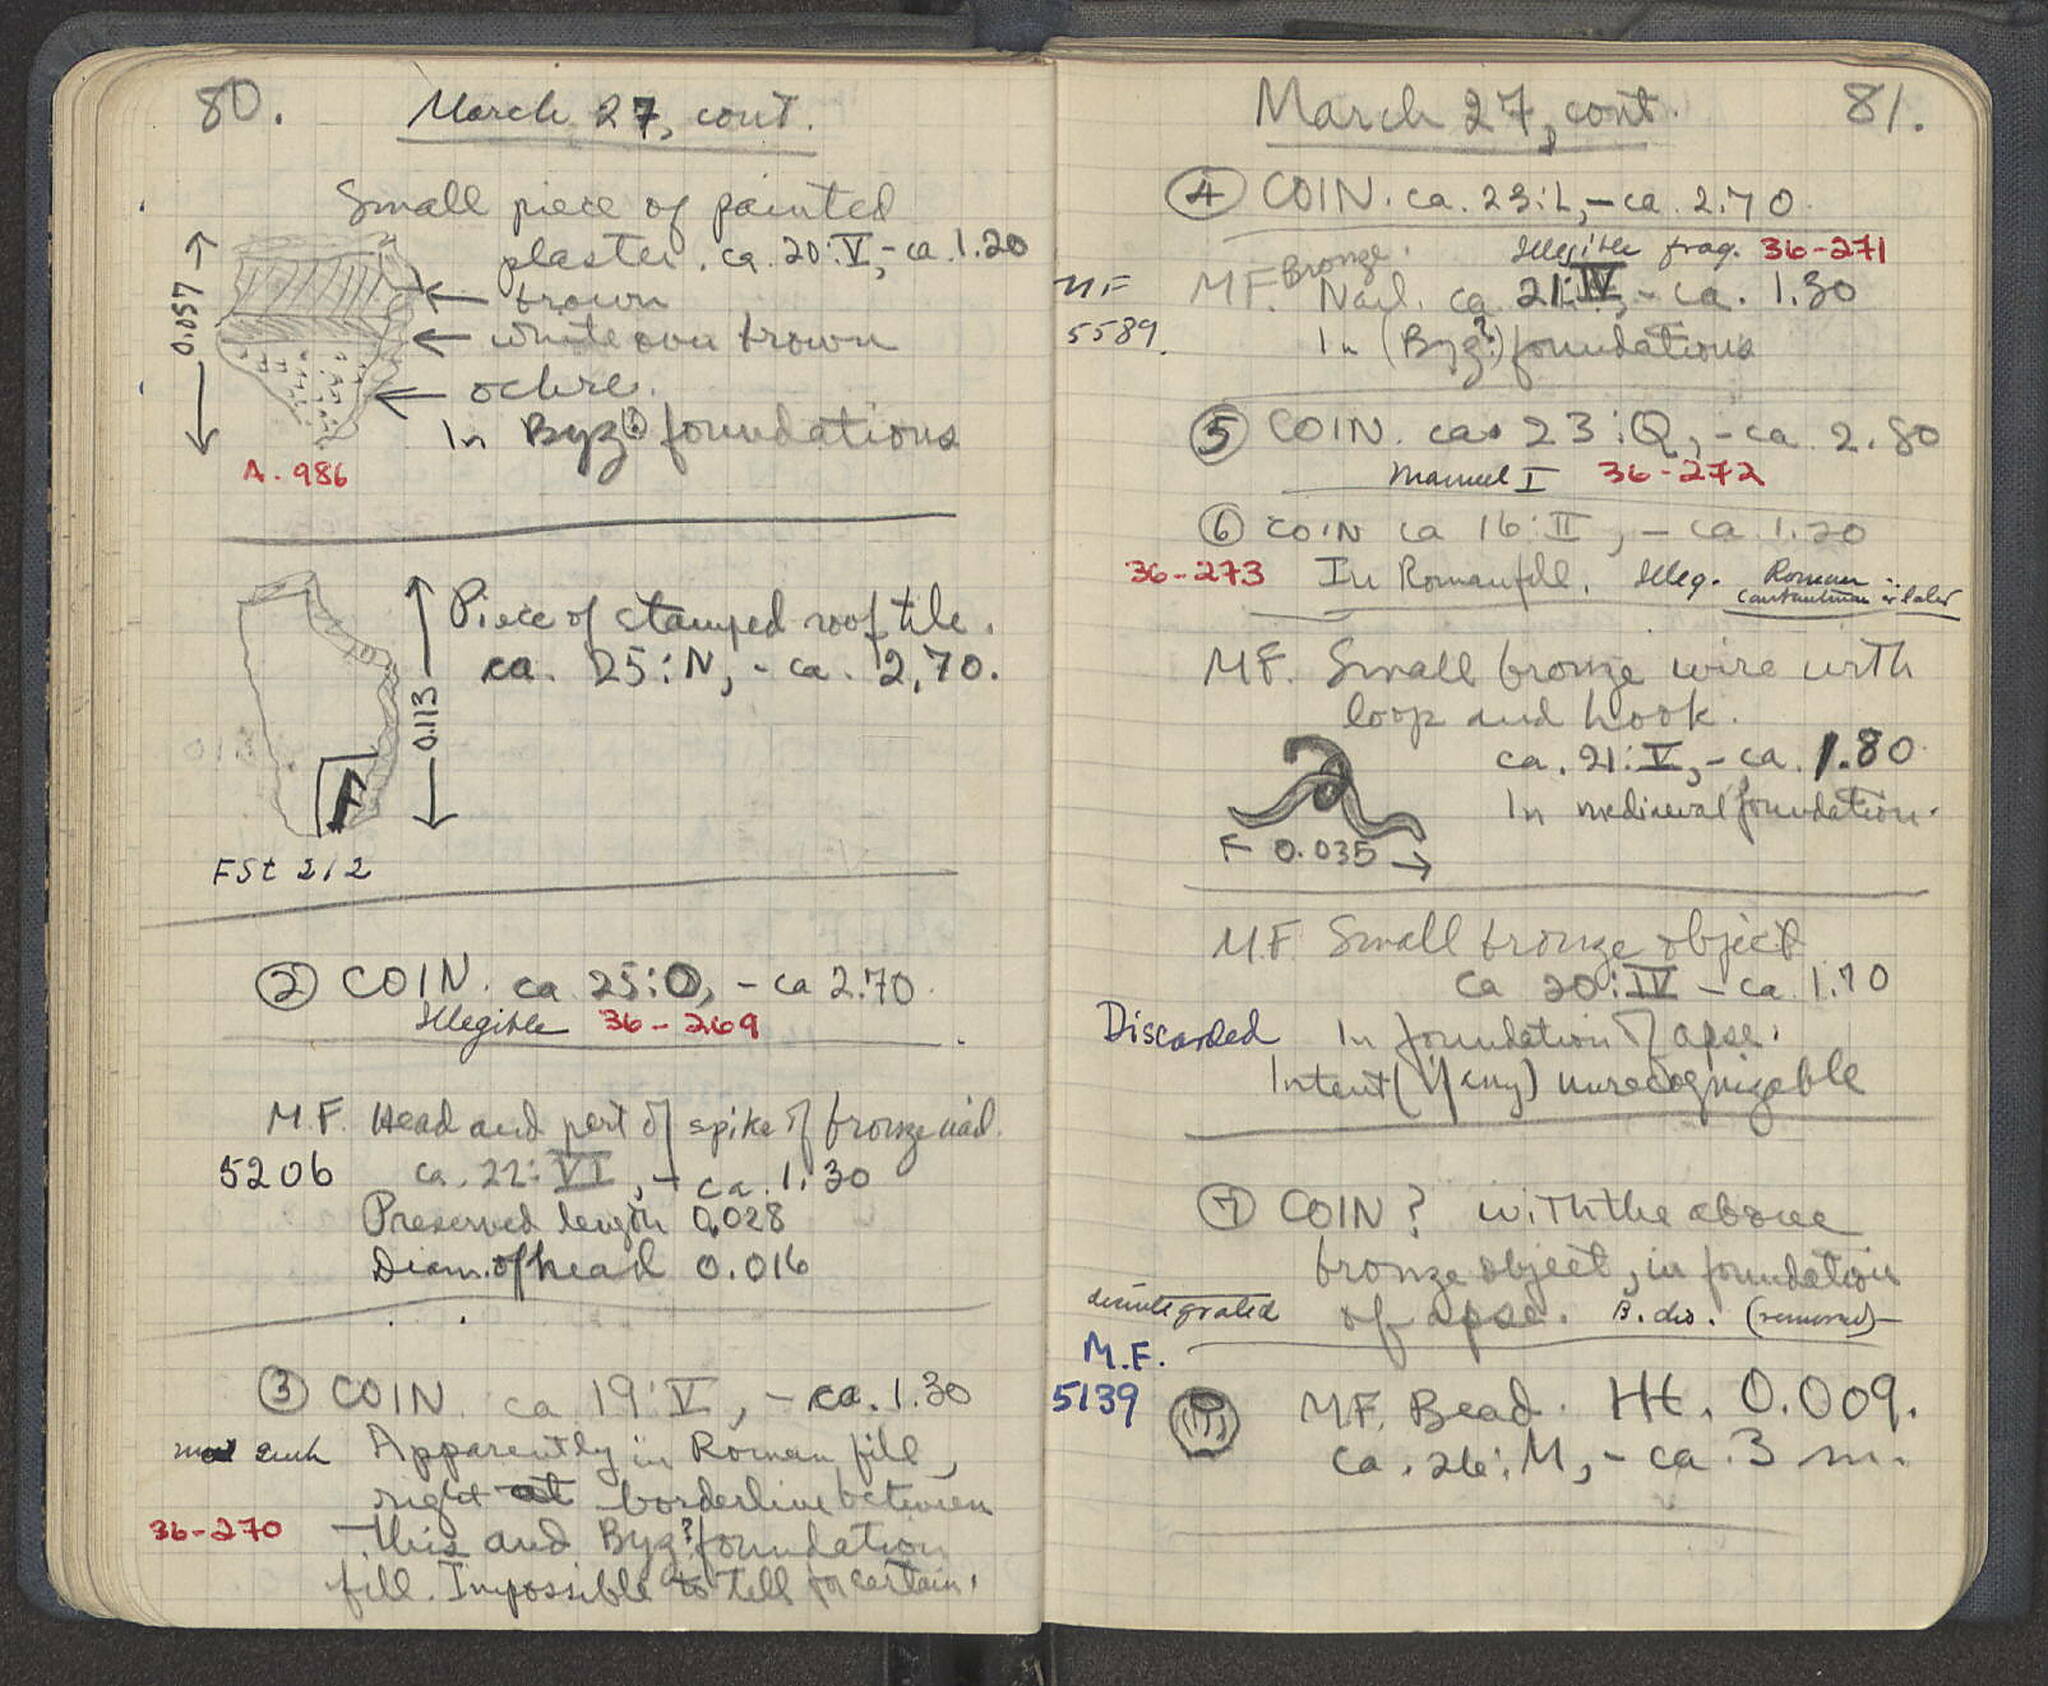 80. March 27, cont.
Small piece of painted
plaster. ca. 20:V, - ca. 1.20
brown
white over brown
ochre.
In Byz(?) foundations
0.057
A. 986
Piece of stamped roof tile.
ca. 25:N, - ca. 2.70.
0.113
F
FSt 212
② COIN. ca 25:O, - ca 2.70.
Illegible 36-269
M.F. Head and part of spike of bronze nail.
5206 ca. 22:VI, - ca. 1.30
Preserved length 0.028
Diam. of head 0.016
③ COIN. ca 19:V, - ca. 1.30
Apparently in Roman fill,
right at borderline between
36-270 this and Byz? foundation
fill. Impossible to tell for certain.
March 27, cont. 81.
④ COIN. ca. 23:L, - ca. 2.70.
Illegible frag. 36-271
MF
5589.
MF. Bronze
Nail. ca 21:IV, - ca. 1.30
In (Byz?) foundations
⑤ COIN. ca. 23:Q, - ca 2.80
Manuel I 36-272
⑥ COIN ca 16:II, - ca 1.20
36-273 In Roman fill. Illeg. Roman
Constantinian or later
MF. Small bronze wire with
loop and hook.
ca. 21:V, - ca. 1.80
In mediaeval foundation.
0.035
M.F. Small bronze object
ca 20:IV - ca. 1.70
Discarded In foundation of apse.
Intent (if any) unrecognizable
⑦ COIN? with the above
bronze object, in foundation
disintegrated of apse. B. dis. (removed)
M.F.
5139
MF. Bead. Ht. 0.009.
ca. 26:M, - ca. 3 m.